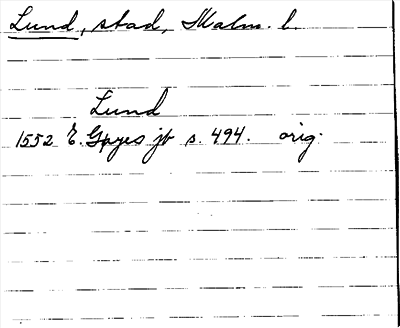 Lund, stad, Malm. l.
Lund
1552 E. Gages jb s. 494. orig.